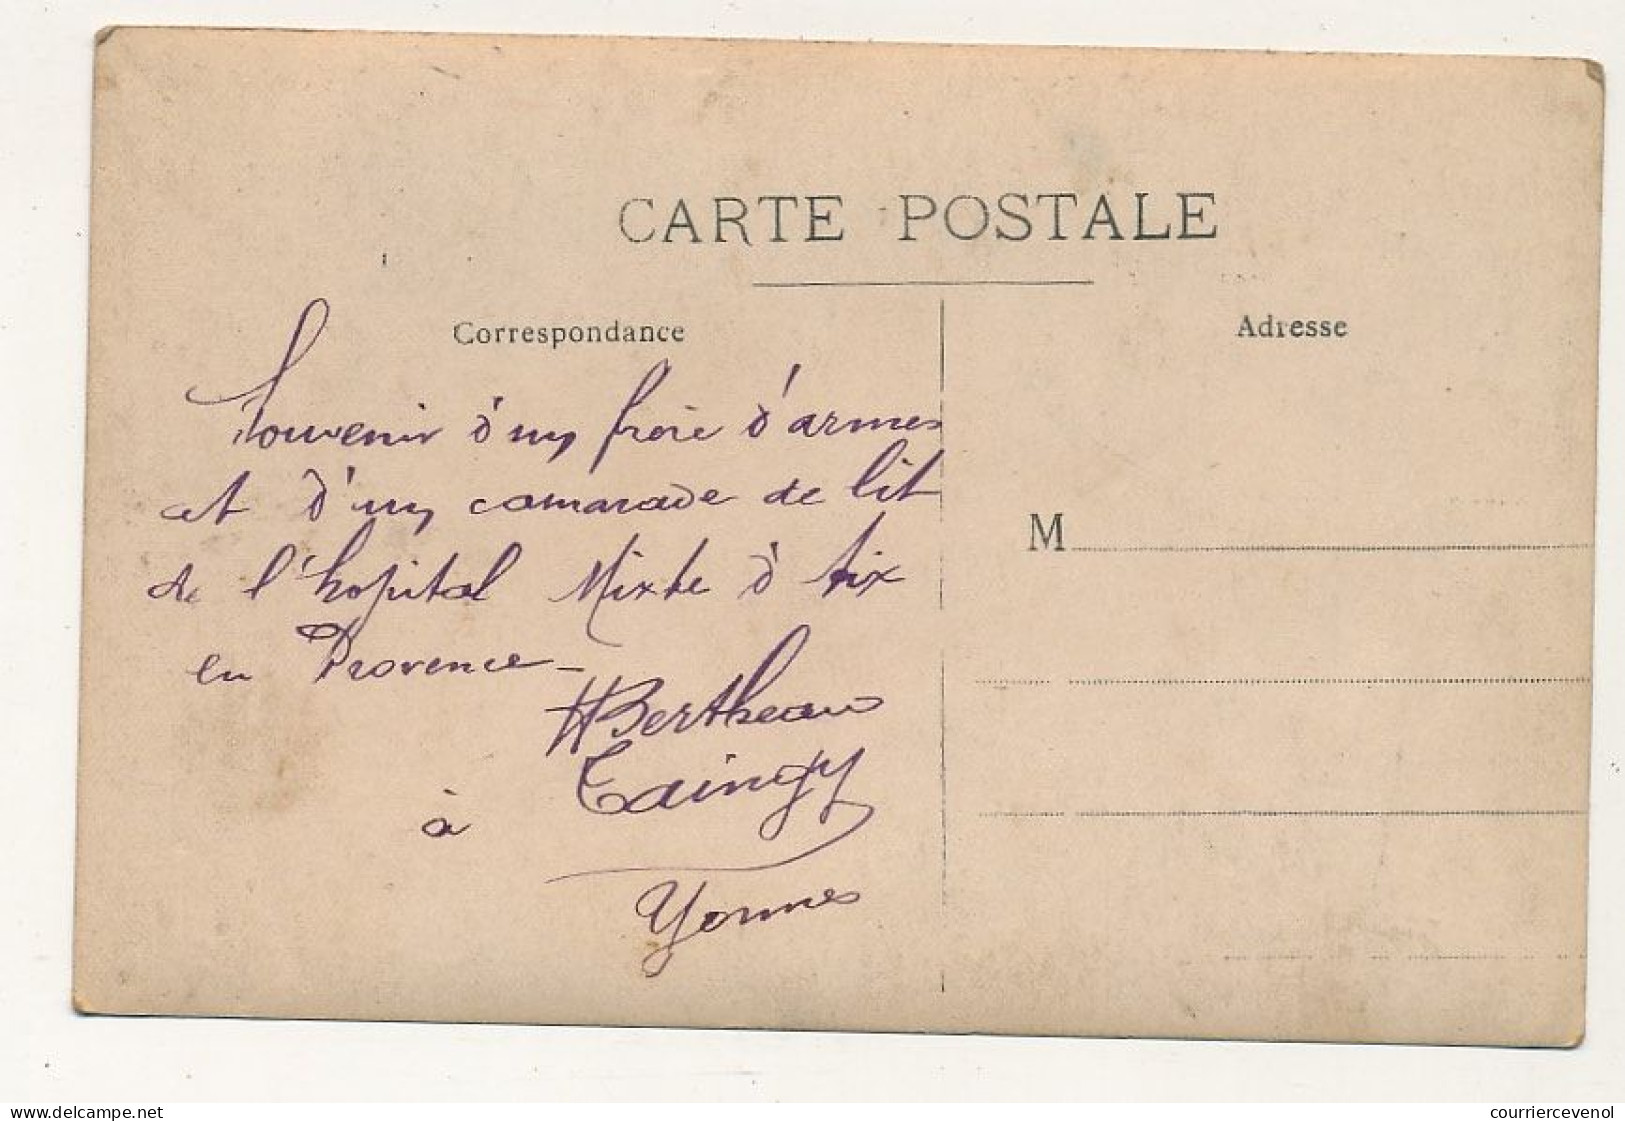 CARTE POSTALE
Correspondance
Adresse
Souvenir d'un frère d'armes
et d'un camarade de lit
de l'hopital Mixte d'Aix
en Provence –
HBertheau
à Taingy
Yonnes
M
www.delcampe.net
courriercevenol